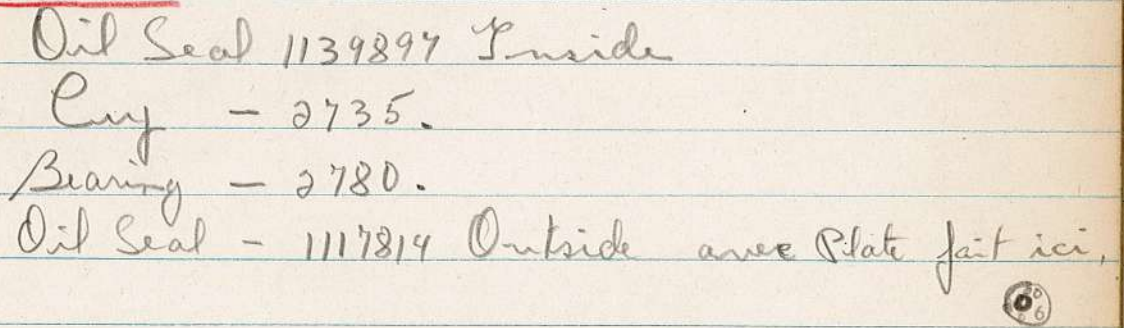 Oil Seal 1139897 Inside
Cup - 2735.
Bearing - 2780.
Oil Seal - 1117814 Outside avec Plate fait ici,